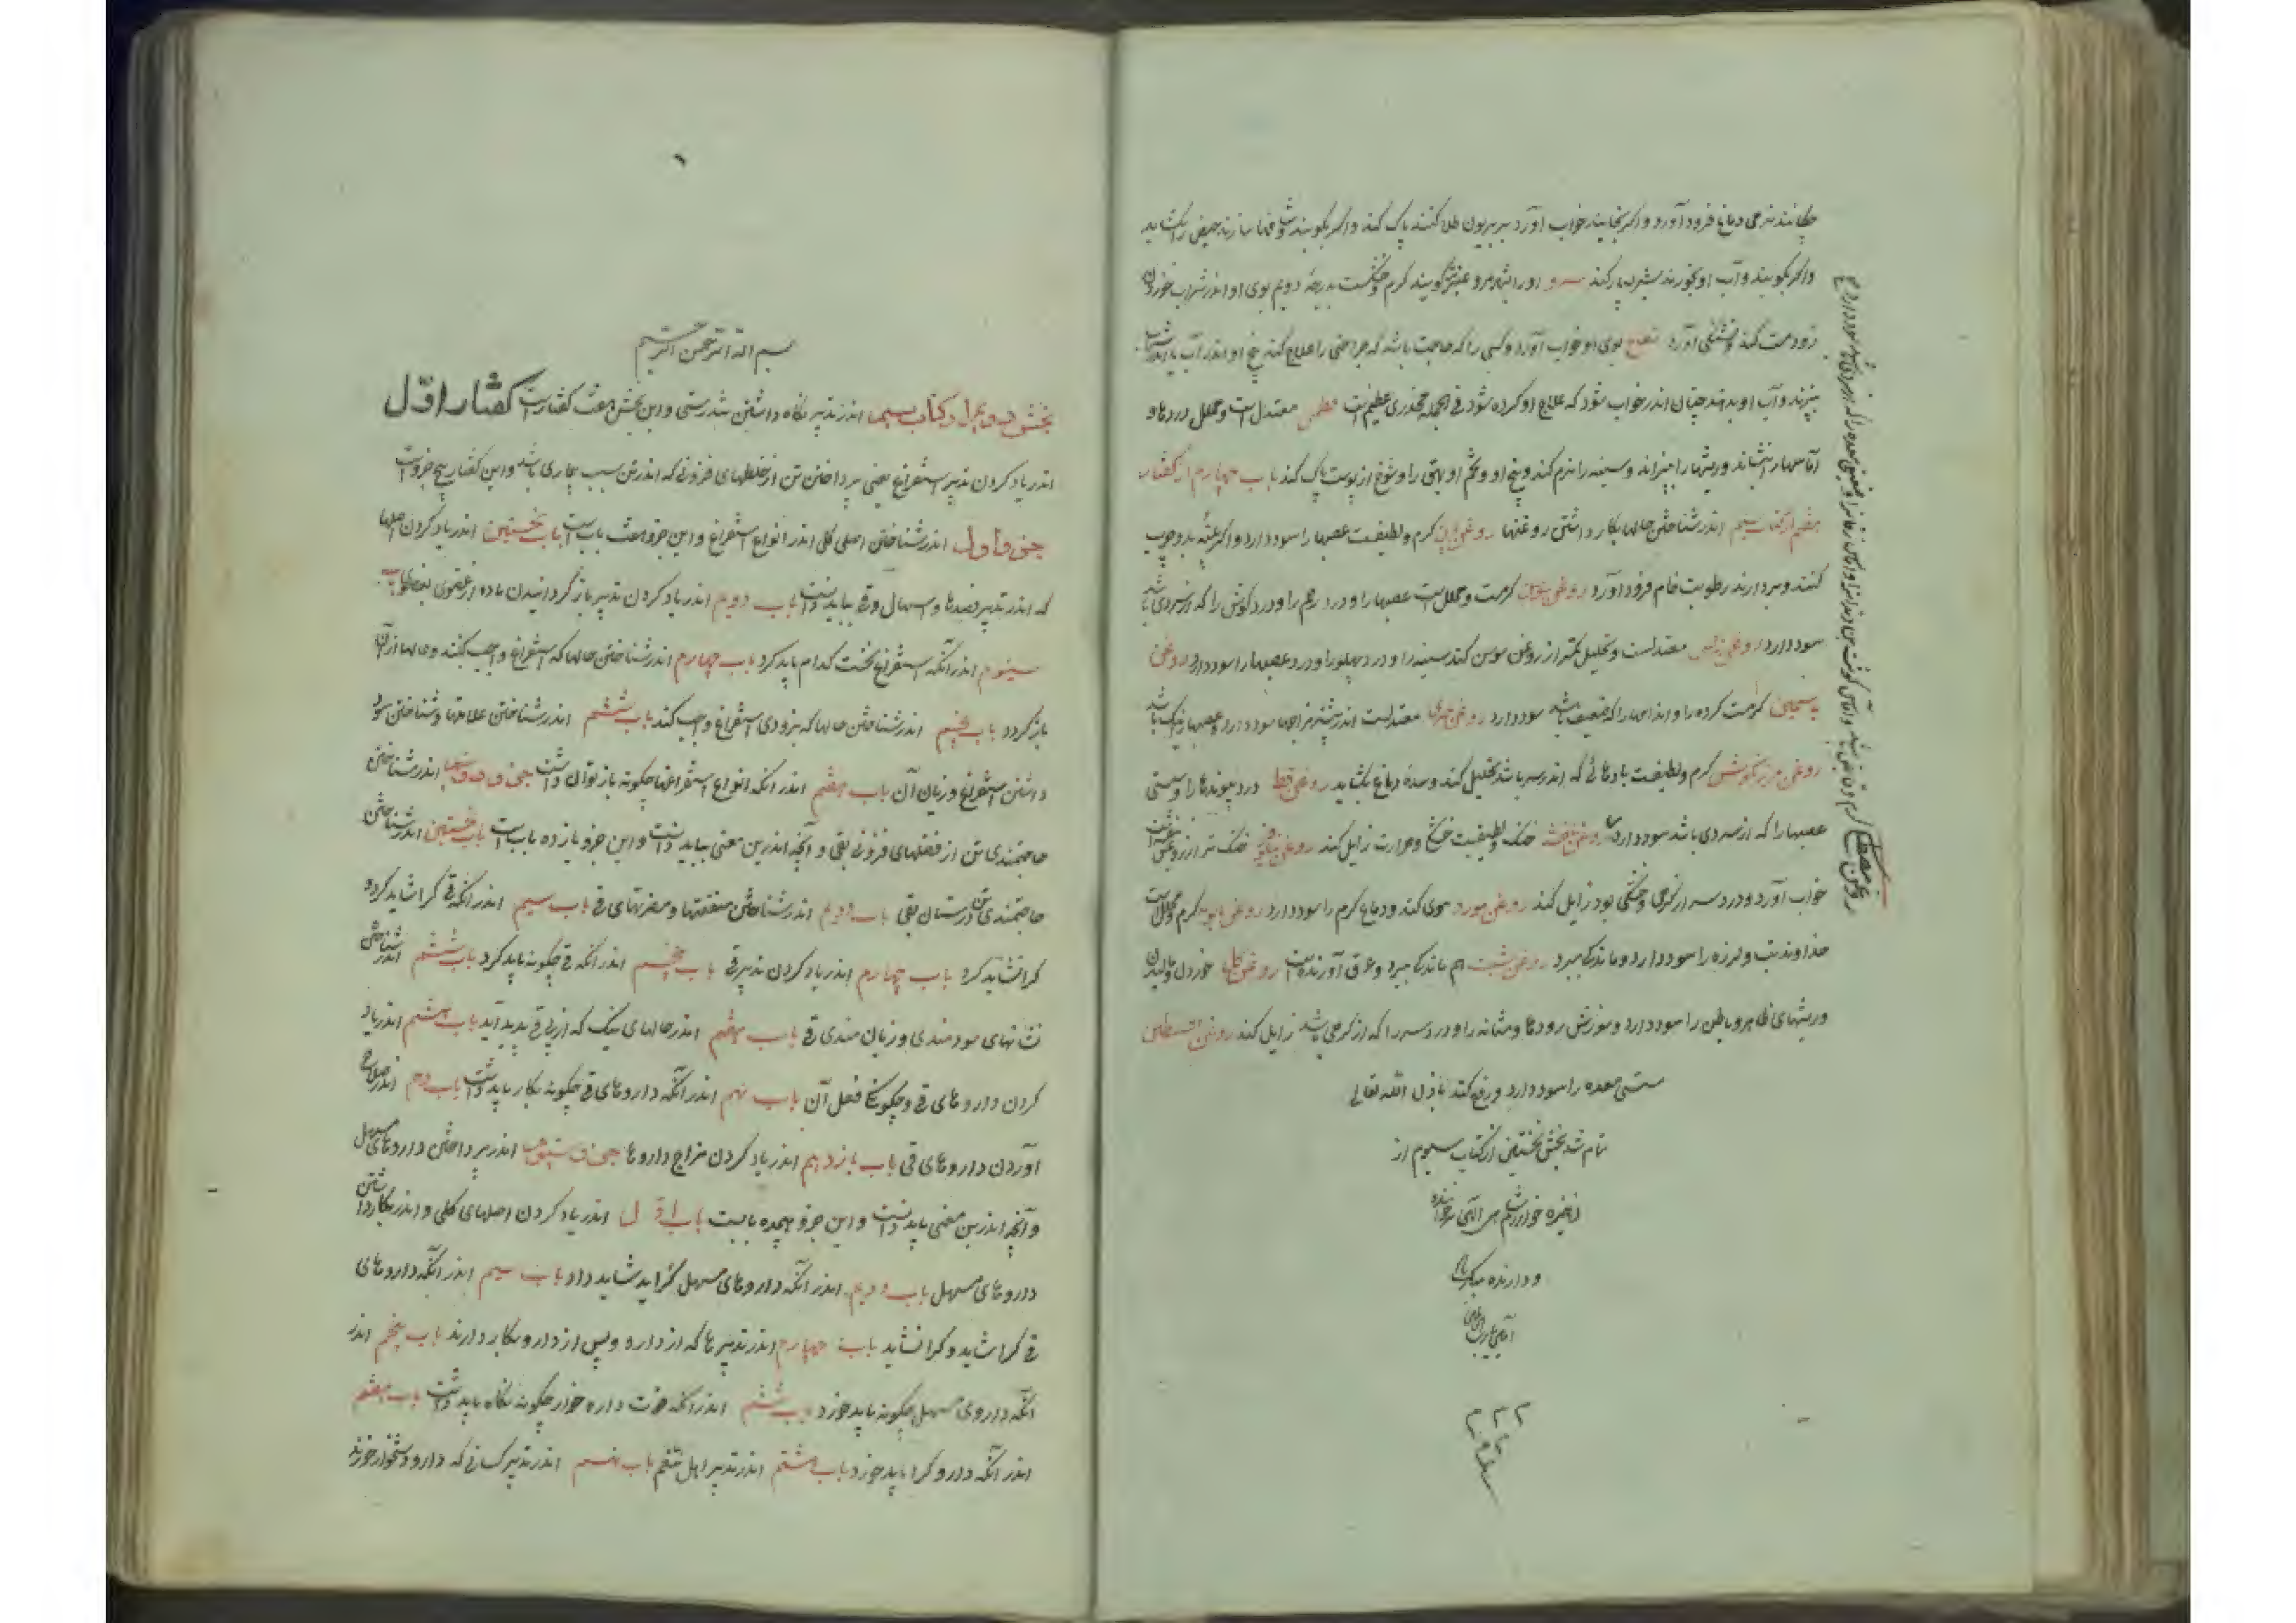 چکانند نرمی دماغ فرود آورد و اگر بخایند خواب آورد بر بریون طلا کنند پاک کند و اگر بکوبند و شافها سازند حیض را بکشاید
واگر بکوبند و آب او بخورند کند سرو او را بشهر مرو گویند گرم و خشکست بدرجۀ دویم بوی او اندر شراب خوردن
زود مست کند و تشنگی آورد تفاح بوی او خواب آورد و کسی را که حاجت باشد که جراحتی را علاج کنند بیخ او اندر آب یا اندر شراب
بپزند و آب او بدهند چنان اندر خواب شود که علاج او کرده شود فی الجمله مخدری عظیم است خطمی معتدل است و محلل دردها و
آماسها را بنشاند و ریشها را بپزاند و سینه را نرم کند و بیخ او و تخم او بهق را و شوخ از پوست پاک کند باب چهارم از گفتار
هفتم از کتاب سیم اندر شناختن حالها بکار داشتن روغنها روغن گرم و لطیفست عصبها را سود دارد و اگر پنبه بدو چرب
کنند و بردارند رطوبت خام فرود آورد روغن سوسن گرمست و محلل است عصبها را و درد رحم را و درد گوش را که از سردی باشد
سود دارد روغن نرگس معتدلست و تحلیل کمتر از روغن سوسن کند سینه را و درد پهلو را و درد عصبها را سود دارد روغن
یاسمین گرمست گرده را و اندامها را که ضعیف باشد سود دارد روغن خیری معتدلست اندر بیشتر مزاجها سود دارد و عصبها را نیک باشد
روغن مرزنگوش گرم و لطیفست بادهائی که اندر سر باشد تحلیل کند و سدۀ دماغ بکشاید روغن قسط درد پیوندها را و سستی
عصبها را که از سردی باشد سود دارد روغن بنفشه خنک و لطیفست خشکی و حرارت زایل کند روغن نیلوفر خنک تر از روغن بنفشه است
خواب آورد و درد سر از گرمی و خشکی بود زایل کند روغن مورد موی کند و دماغ گرم را سود دارد روغن بابونه گرم و محلل است
خداوند تب و لرزه را سود دارد و ماندگی ببرد روغن شبت هم ماندگی ببرد و عرق آورنده است روغن گل خوردن و مالیدن
و ریشهای ظاهر و باطن را سود دارد و سوزش رودها و مثانه را و درد سر را که از گرمی باشد زایل کند روغن
سستی معده را سود دارد و رفع کند باذن الله تعالی
تمام شد بخش نخستین از کتاب سیوم از
ذخیره خوارزمشاهی الهی خواننده
و دارنده مبارک باد
آمین یا رب العالمین
روغن مصطکی گرم و قابض
بسم الله الرحمن الرحیم
بخش دوم از کتاب سیم اندر تدبیر نگاه داشتن تندرستی و این بخش هفت گفتارست گفتار اوّل
اندر یاد کردن تدبیر استفراغ یعنی پرداختن تن از خلطهای فزونی که اندر تن سبب بیماری باشد و این گفتار پنج جزو است
جزو اول اندر شناختن اصلی کلی اندر انواع استفراغ و این جزو هفت بابست باب نخستین اندر یاد کردن اصلها
که اندر تدبیر فصدها و اسهال و قی بباید دانست باب دویم اندر یاد کردن تدبیر باز گردانیدن ماده از عضوی بعضوی باب
سیوم اندر آنکه استفراغ نخست کدام باید کرد باب چهارم اندر شناختن حالها که استفراغ واجب کنند و حالها از آن
باز گردد باب پنجم اندر شناختن حالها که بزودی استفراغ واجب کند باب ششم اندر شناختن علامتها و شناختن سود
داشتن استفراغ و زیان آن باب هفتم اندر آنکه انواع استفراغها چگونه باز توان داشت جزو دوم اندر شناختن
حاجتمندی تن از فضلهای فزونی بقی و آنچه اندرین معنی بباید دانست و این جزو یازده باب است باب نخستین اندر شناختن
حاجتمندی تن درستان بقی باب دویم اندر شناختن منفعتها و مضرتهای قی باب سیم اندر آنکه قی کرا شاید کرد و
کرا نشاید کرد باب چهارم اندر یاد کردن تدبیر قی باب پنجم اندر آنکه قی چگونه باید کرد باب ششم اندر شناختن
نشانهای سودمندی و زیان مندی قی باب هفتم اندر حالهای نیک که از پی قی پدید آید باب هشتم اندر یاد
کردن داروهای قی و چگونگی فعل آن باب نهم اندر آنکه داروهای قی چگونه بکار باید داشت باب دهم اندر صلاح
آوردن داروهای قی باب یازدهم اندر یاد کردن مزاج داروها جزو سیوم اندر پرداختن داروهای مسهل
و آنچه اندرین معنی باید دانست و این جزو هیجده بابست باب اوّل اندر یاد کردن اصلهای کلی و اندر بکار داشتن
داروهای مسهل باب دویم اندر آنکه داروهای مسهل کرا شاید داد باب سیم اندر آنکه داروهای
قی کرا شاید و کرا نشاید باب چهارم اندر تدبیرها که از دارو و پس از دارو بکار دارند باب پنجم اندر
آنکه داروی مسهل چگونه باید خورد باب ششم اندر آنکه قوت دارو خوار چگونه نگاه باید داشت باب هفتم
اندر آنکه دارو کرا باید خورد باب هشتم اندر تدبیر اهل تنعم باب نهم اندر تدبیر کسانی که دارو دشخوار خورند